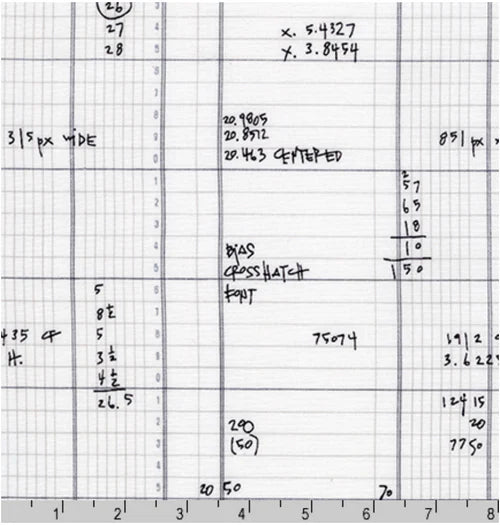 26
27
28
x. 5.4327
y. 3.8454
4
5
6
7
8
9
0
1
2
3
4
5
6
7
8
9
0
1
2
3
4
5
315 px WIDE
20.9805
20.8512
20.463 CENTERED
851 px
2
57
65
18
10
150
BIAS
CROSSHATCH
FONT
5
8 1/2
5
3 1/2
4 1/2
26.5
435 CF
H.
75074
1912
3.6225
12415
20
7750
200
(50)
20 50
70
1 2 3 4 5 6 7 8